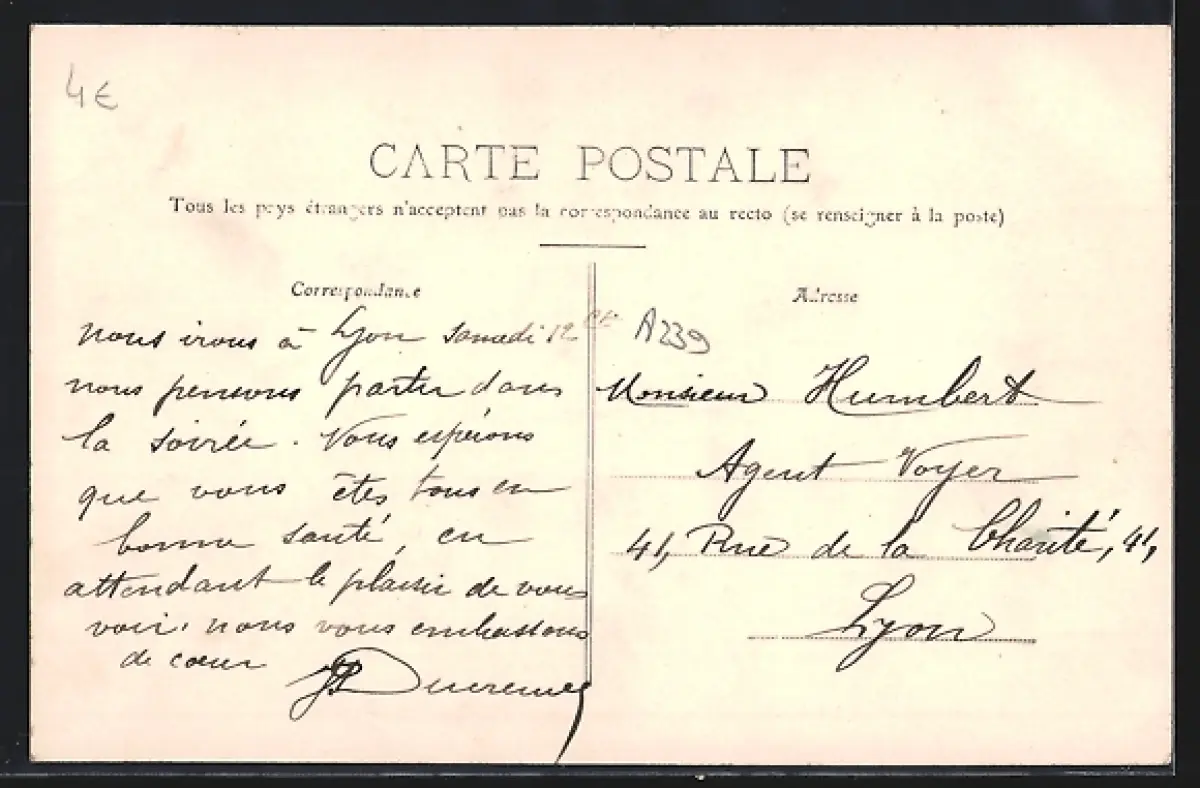 4€
CARTE POSTALE
Tous les pays étrangers n'acceptent pas la correspondance au recto (se renseigner à la poste)
Correspondance
Adresse
nous irons à Lyon samedi 12 ct
nous pensons partir dans
la soirée. Nous espérons
que vous êtes tous en
bonne santé, en
attendant le plaisir de vous
voir, nous vous embrassons
de cœur
A239
Monsieur Humbert
Agent Voyer
41, Rue de la Charité, 41,
Lyon